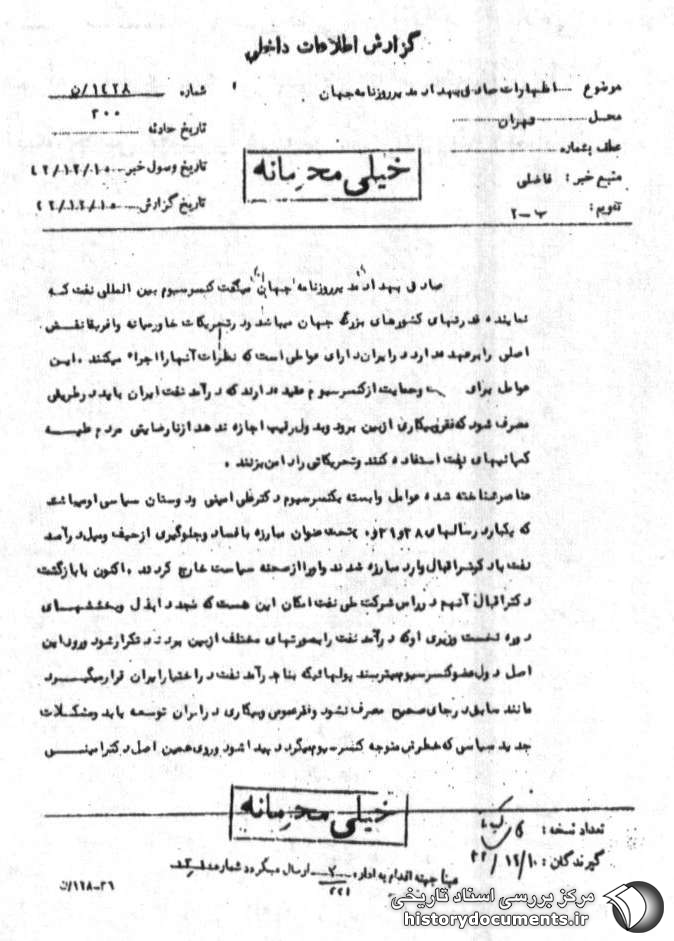 گزارش اطلاعات داخلی
موضوع اظهارات صادق بهداد مدیر روزنامه جهان
شماره ۱۴۲۸/ن
۳۰۰
محل تهران
تاریخ حادثه
عطف بشماره
تاریخ وصول خبر ۴۲/۱۲/۱۰
منبع خبر : فاضلی
تاریخ گزارش ۴۲/۱۲/۱۰
تقویم : ب-۲
خیلی محرمانه
صادق بهداد مدیر روزنامه "جهان" میگفت کنسرسیوم بین المللی نفت که
نماینده قدرتهای کشورهای بزرگ جهان میباشد و در تحریکات خاورمیانه و افریقا نقش
اصلی را برعهده دارد در ایران دارای عواملی است که نظرات آنها را اجراء میکنند . این
عوامل برای وحمایت از کنسرسیوم عقیده دارند که درآمد نفت ایران باید در طریقی
مصرف شود که فقر و بیکاری از بین برود و بدین ترتیب اجازه ندهد از نارضایتی مردم علیه
کمپانیهای نفت استفاده کنند و تحریکاتی را دامن بزنند .
عناصر شناخته شده عوامل وابسته بکنسرسیوم دکتر علی امینی و دوستان سیاسی او میباشند
که یکبار در سالهای ۳۸ و ۳۹ و ۴۰ تحت عنوان مبارزه با فساد و جلوگیری از حیف و میل درآمد
نفت با دکتر اقبال وارد مبارزه شدند و او را از صحنه سیاست خارج کردند . اکنون با بازگشت
دکتر اقبال آنهم در راس شرکت ملی نفت امکان این هست که مجددا بذل و بخششهای
دوره نخست وزیری او که درآمد نفت را بصورتهای مختلف از بین بردند تکرار شود و روی این
اصل دول عضو کنسرسیوم میترسند پولهائیکه بنام درآمد نفت در اختیار ایران قرار میگیرد
مانند سابق در جای صحیح مصرف نشود و فقر عمومی و بیکاری در ایران توسعه یابد و مشکلات
جدید سیاسی که خطرش متوجه کنسرسیوم میگردد پیدا شود و روی همین اصل دکتر امینی
خیلی محرمانه
تعداد نسخه :
گیرندگان :
۴۲/۱۲/۱۰
عینا جهت اقدام به اداره ۲ ارسال میگردد شماره
۳۲۱
۱۱۸-۳۶/ن
مرکز بررسی اسناد تاریخی
historydocuments.ir